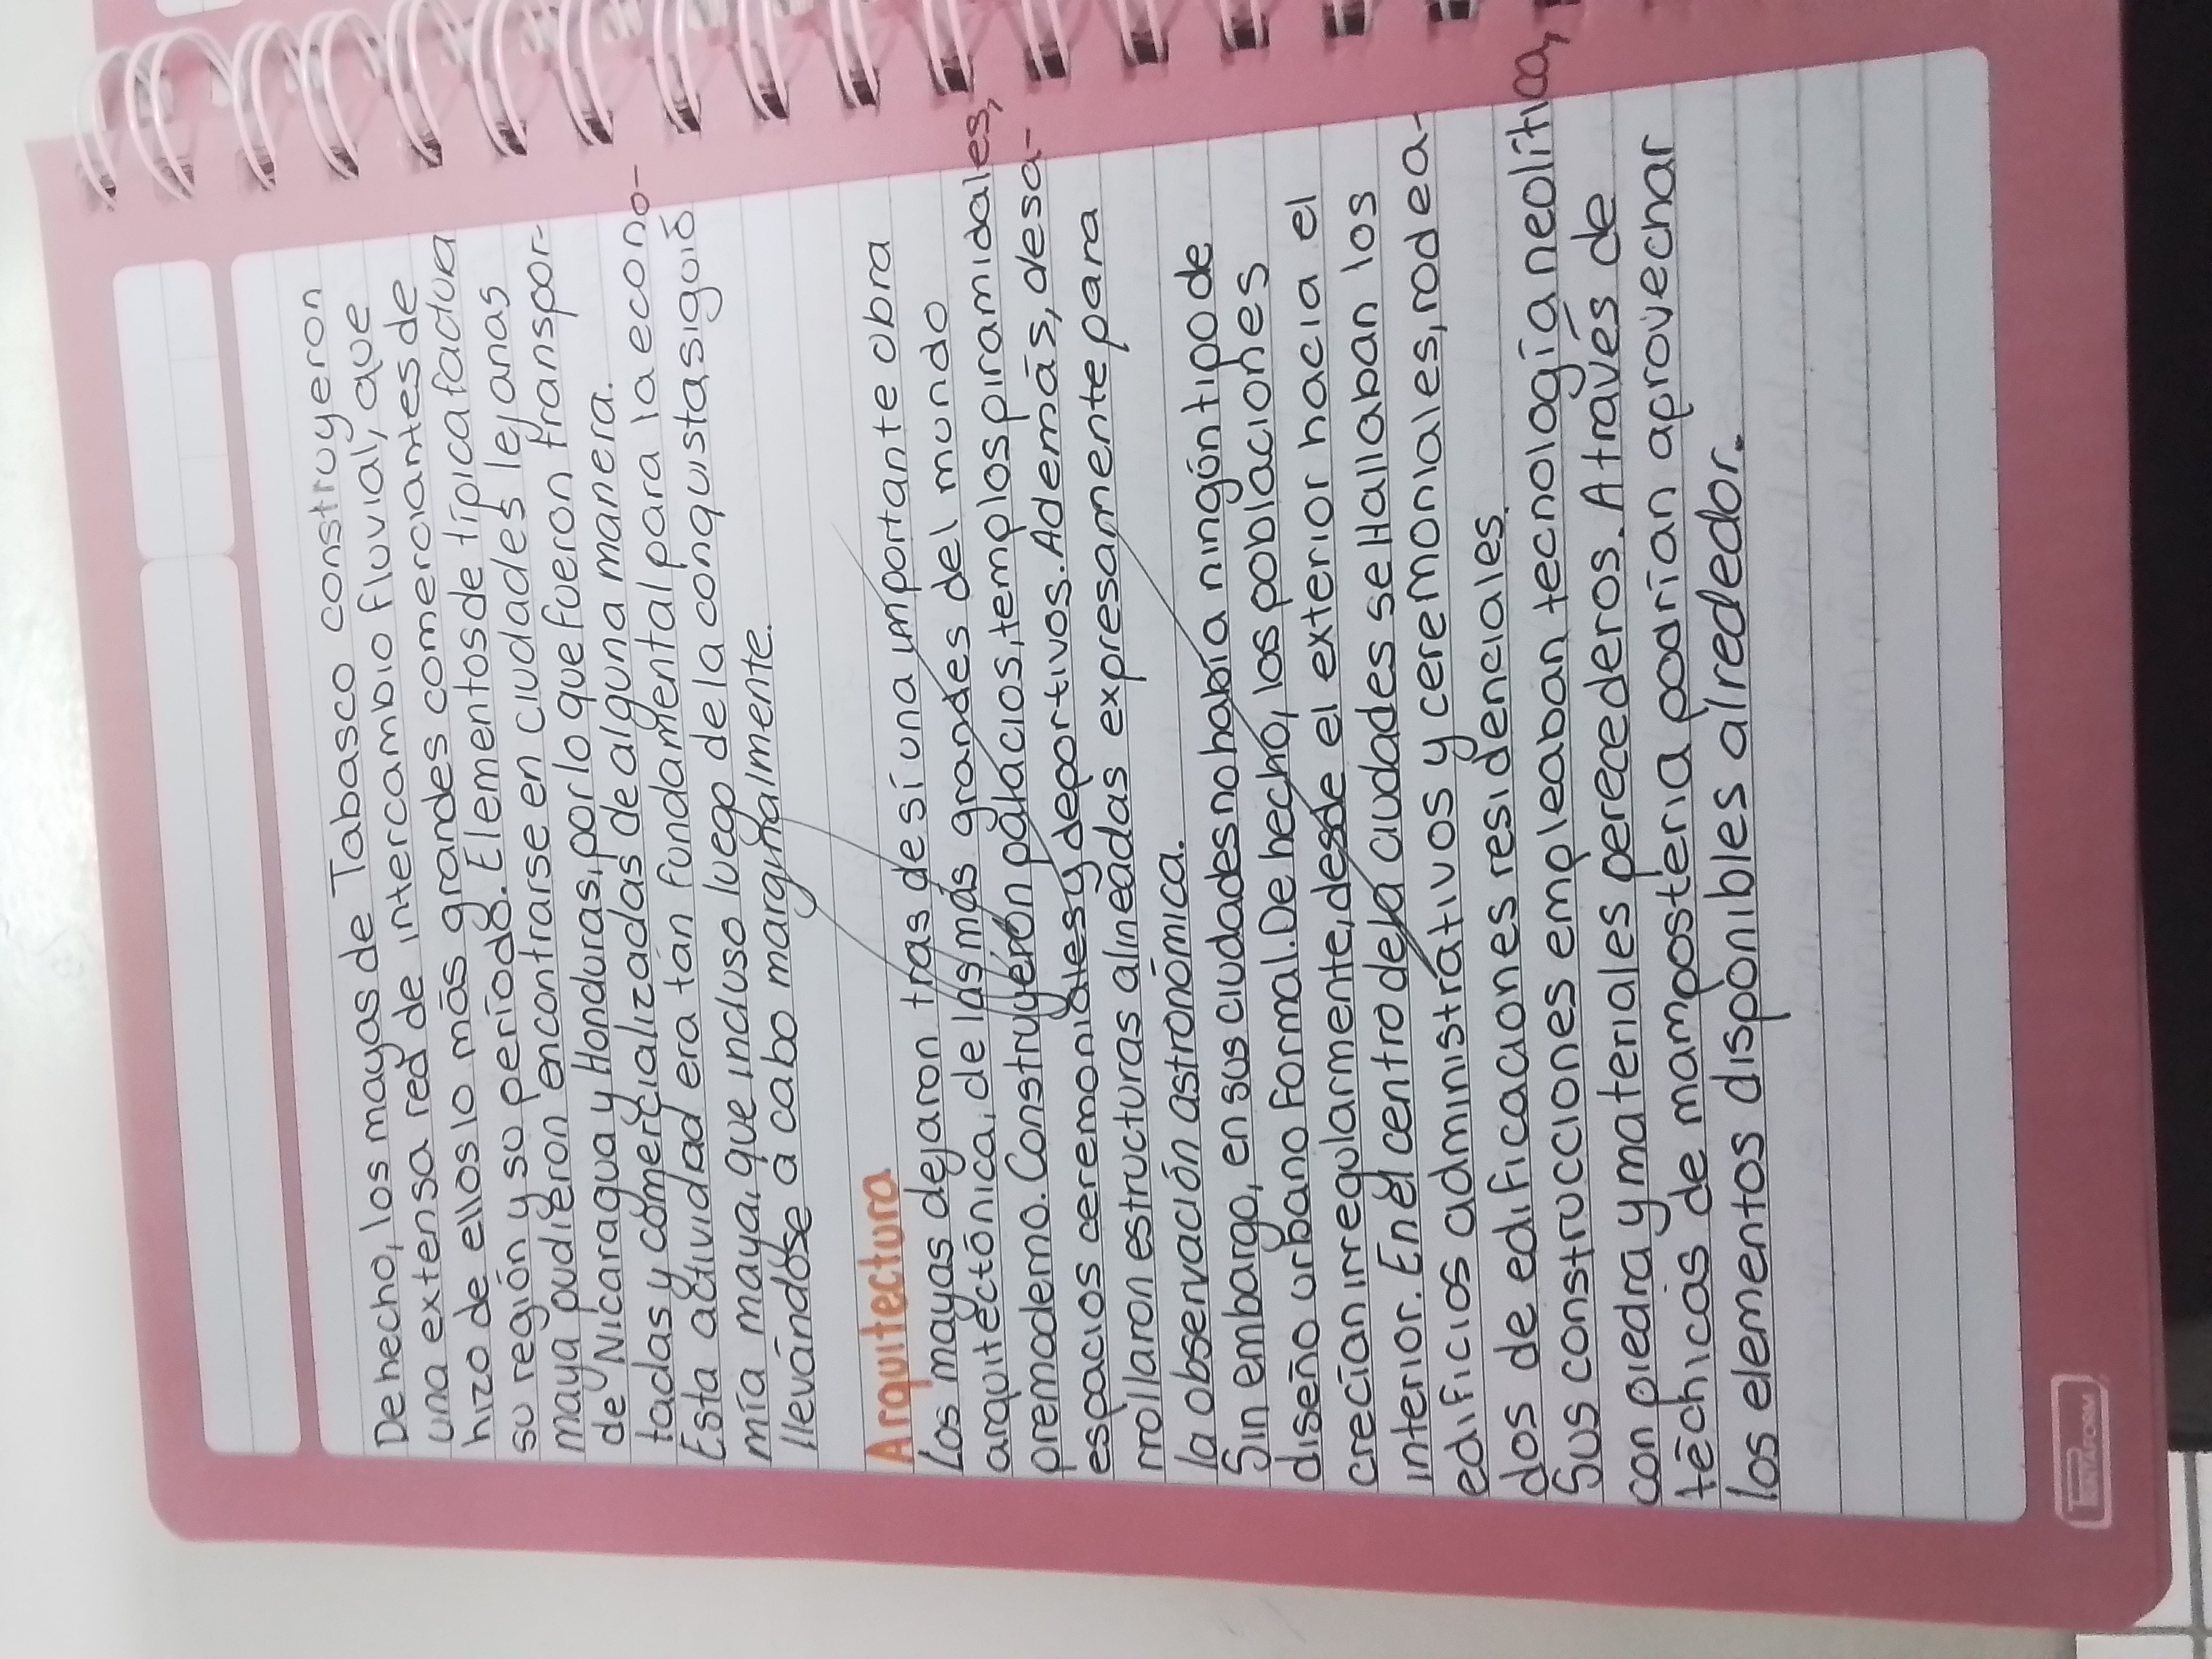 De hecho, los mayas de Tabasco construyeron
una extensa red de intercambio fluvial, que
hizo de ellos lo más grandes comerciantes de
su región y su período. Elementos de típica factua
maya pudieron encontrarse en ciudades lejanas
de Nicaragua y Honduras, por lo que fueron transpor-
tadas y comercializadas de alguna manera.
Esta actividad era tán fundamental para la econo-
mía maya, que incluso luego de la conquista siguió
llevándose a cabo marginalmente.
Arquitectura
Los mayas dejaron tras de sí una importante obra
arquitectónica, de las más grandes del mundo
premoderno. Construyerón palacios, templos piramidales,
espacios ceremoniales y deportivos. Además, desa-
rrollaron estructuras alineadas expresamente para
la observación astronómica.
Sin embargo, en sus ciudades no había ningún tipo de
diseño urbano formal. De hecho, los poblaciones
crecían irregularmente, desde el exterior hacia el
interior. En el centro de la ciudades se Hallaban los
edificios administrativos y ceremoniales, rodea-
dos de edificaciones residenciales.
Sus construcciones empleaban tecnología neolítica,
con piedra y materiales perecederos. A través de
téchicas de mampostería podrían aprovechar
los elementos disponibles alrededor.
TECTAFORM